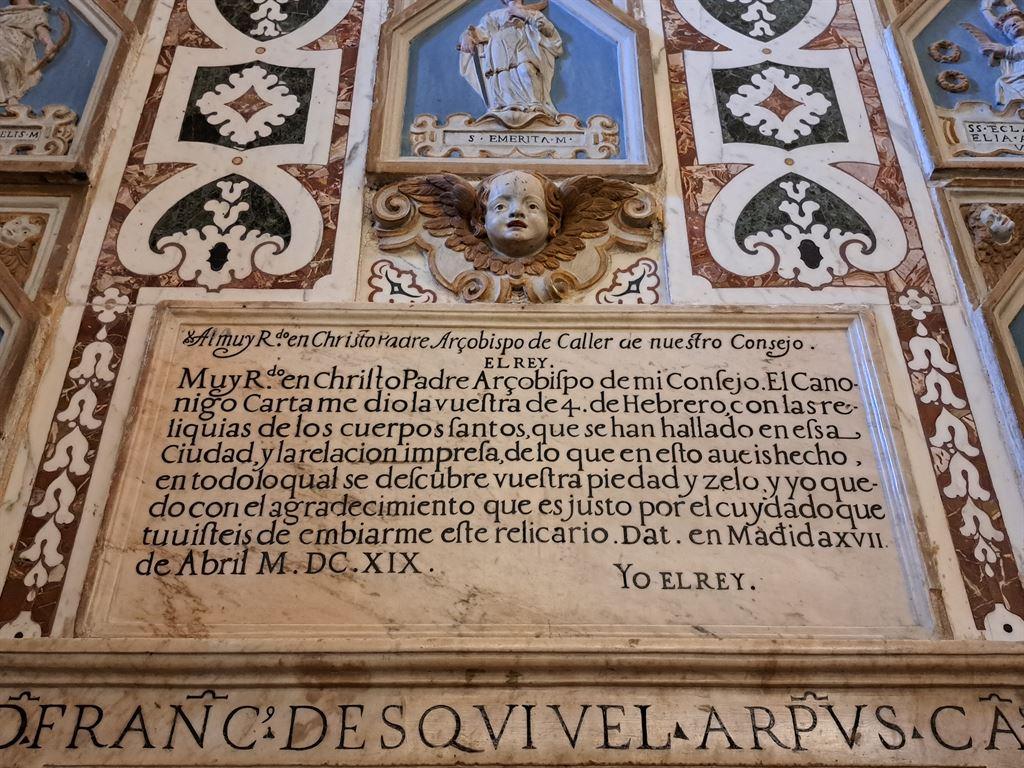 ELIS·M
S·EMERITA·M·
SS·ECLA
ELIA·
Al muy R.do en Christo Padre Arçobispo de Caller de nuestro Consejo.
EL REY.
Muy R.do en Chriſto Padre Arçobiſpo de mi Conſejo. El Cano-
nigo Carta me dio la vueſtra de 4. de Hebrero, con las re-
liquias de los cuerpos ſantos, que se han hallado en eſsa
Ciudad, y la relacion impreſa, de lo que en eſto aueis hecho,
en todo lo qual se deſcubre vueſtra piedad y zelo, y yo que-
do con el agradecimiento que es justo por el cuydado que
tuuiſteis de embiarme eſte relicario. Dat. en Madrid a XVII.
de Abril M. DC. XIX.
YO EL REY.
D. FRANC̃ˢ· DESQVIVEL ARP̃VS CA